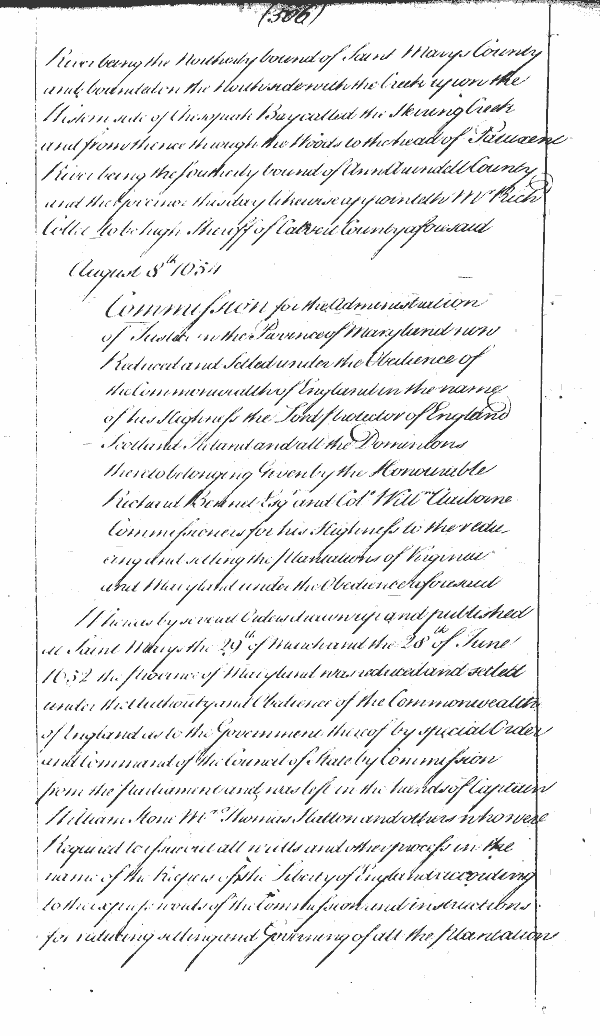 (506)
River being the Northerly bound of Saint Marys County
and bounded on the North side with the Creek upon the
Western side of Chesapeak Bay called the Herring Creek
and from thence through the Woods to the head of Patuxent
River being the Southerly bound of Ann Arundell County
and the Governor this day likewise appointeth Mr Rich
Collet to be high Sheriff of Calvert County aforesaid
August 8th 1654
Commission for the Administration
of Justice in the Province of Maryland now
Reduced and Setled under the Obedience of
the Commonwealth of England in the name
of his Highness the Lord Protector of England
Scotland Ireland and all the Dominions
thereto belonging Given by the Honourable
Richard Bennet Esqr and Coll Willm Claiborne
Commissioners for his Highness to the redu
cing and setling the plantations of Virginia
and Maryland under the Obedience aforesaid
Whereas by several Orders drawn up and published
at Saint Marys the 29th of March and the 28th of June
1652 the province of Maryland was reduced and settled
under the Authority and Obedience of the Commonwealth
of England as to the Government thereof by special Order
and Command of the Council of State by Commission
from the Parliament and was left in the hands of Captain
William Stone Mr Thomas Hatton and others who were
Required to issue out all writts and other process in the
name of the Keepers of the Liberty of England according
to the express words of the Commission and instructions
for reducing setling and Governing of all the plantations